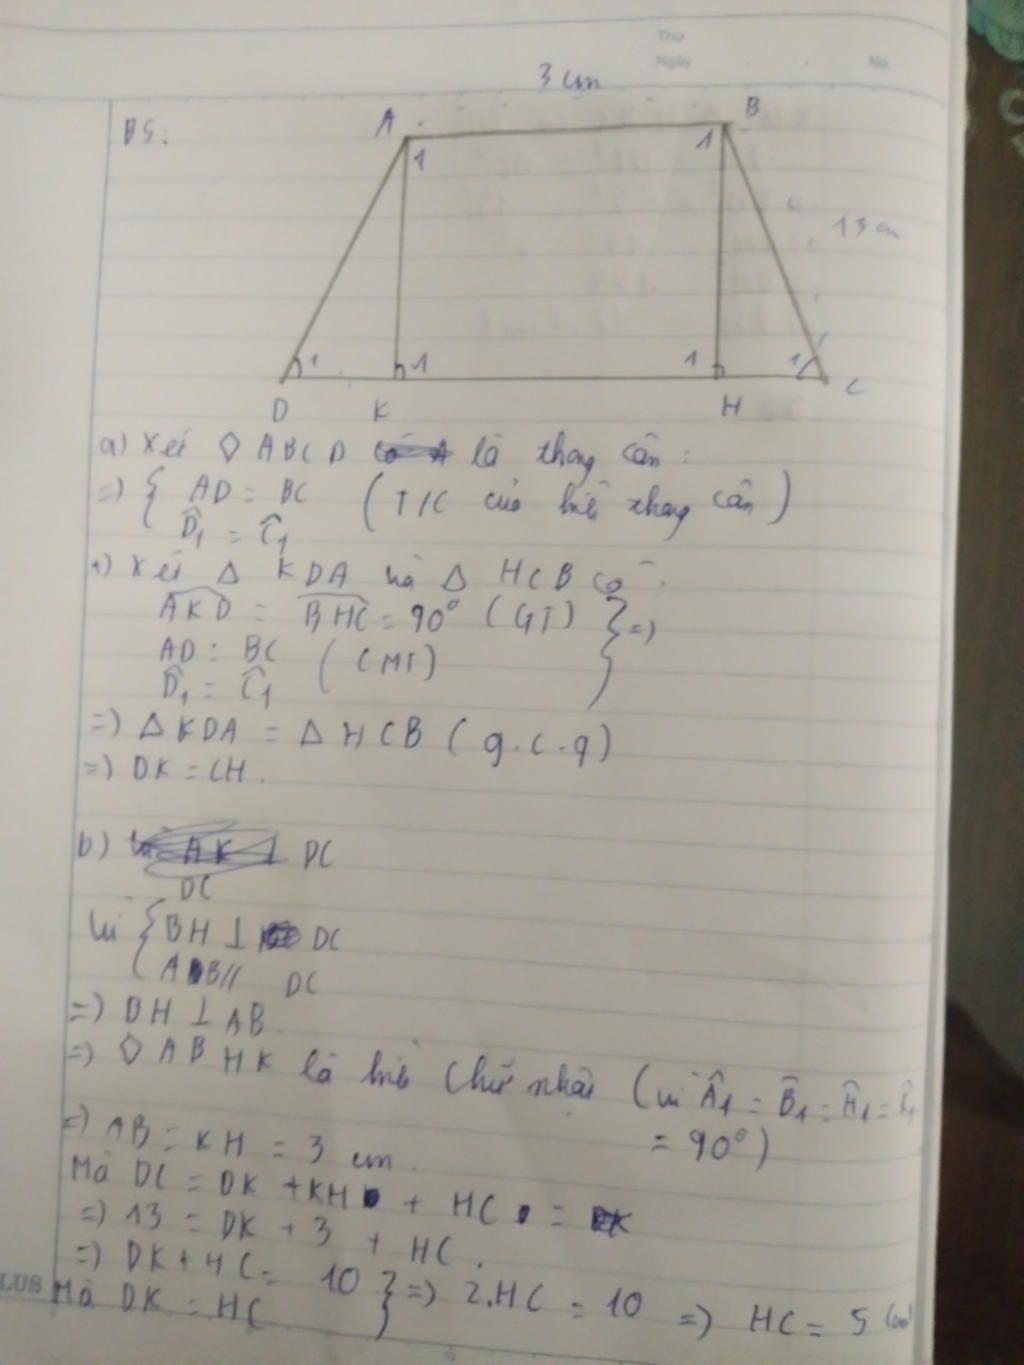 Thứ
Ngày
No.
3 cm
B5:
A
B
1
1
13 cm
1
1
1
1
D
K
H
C
a) Xét ◇ ABCD là thang cân:
=> { AD = BC (T/C của hình thang cân)
D̂₁ = Ĉ₁
+) Xét Δ KDA và Δ HCB có:
AKD = BHC = 90° (GT) } =>
AD = BC (CMT)
D̂₁ = Ĉ₁
=> Δ KDA = Δ HCB (g.c.g)
=> DK = CH.
b) AK ⊥ DC
DC
Vì { BH ⊥ DC
AB // DC
=> BH ⊥ AB
=> ◇ ABHK là hình chữ nhật (vì Â₁ = B̂₁ = Ĥ₁ = K̂₁
= 90°)
=> AB = KH = 3 cm
Mà DC = DK + KH + HC =
=> 13 = DK + 3 + HC.
=> DK + HC = 10 } => 2.HC = 10 => HC = 5 (cm)
Mà DK = HC
LUS